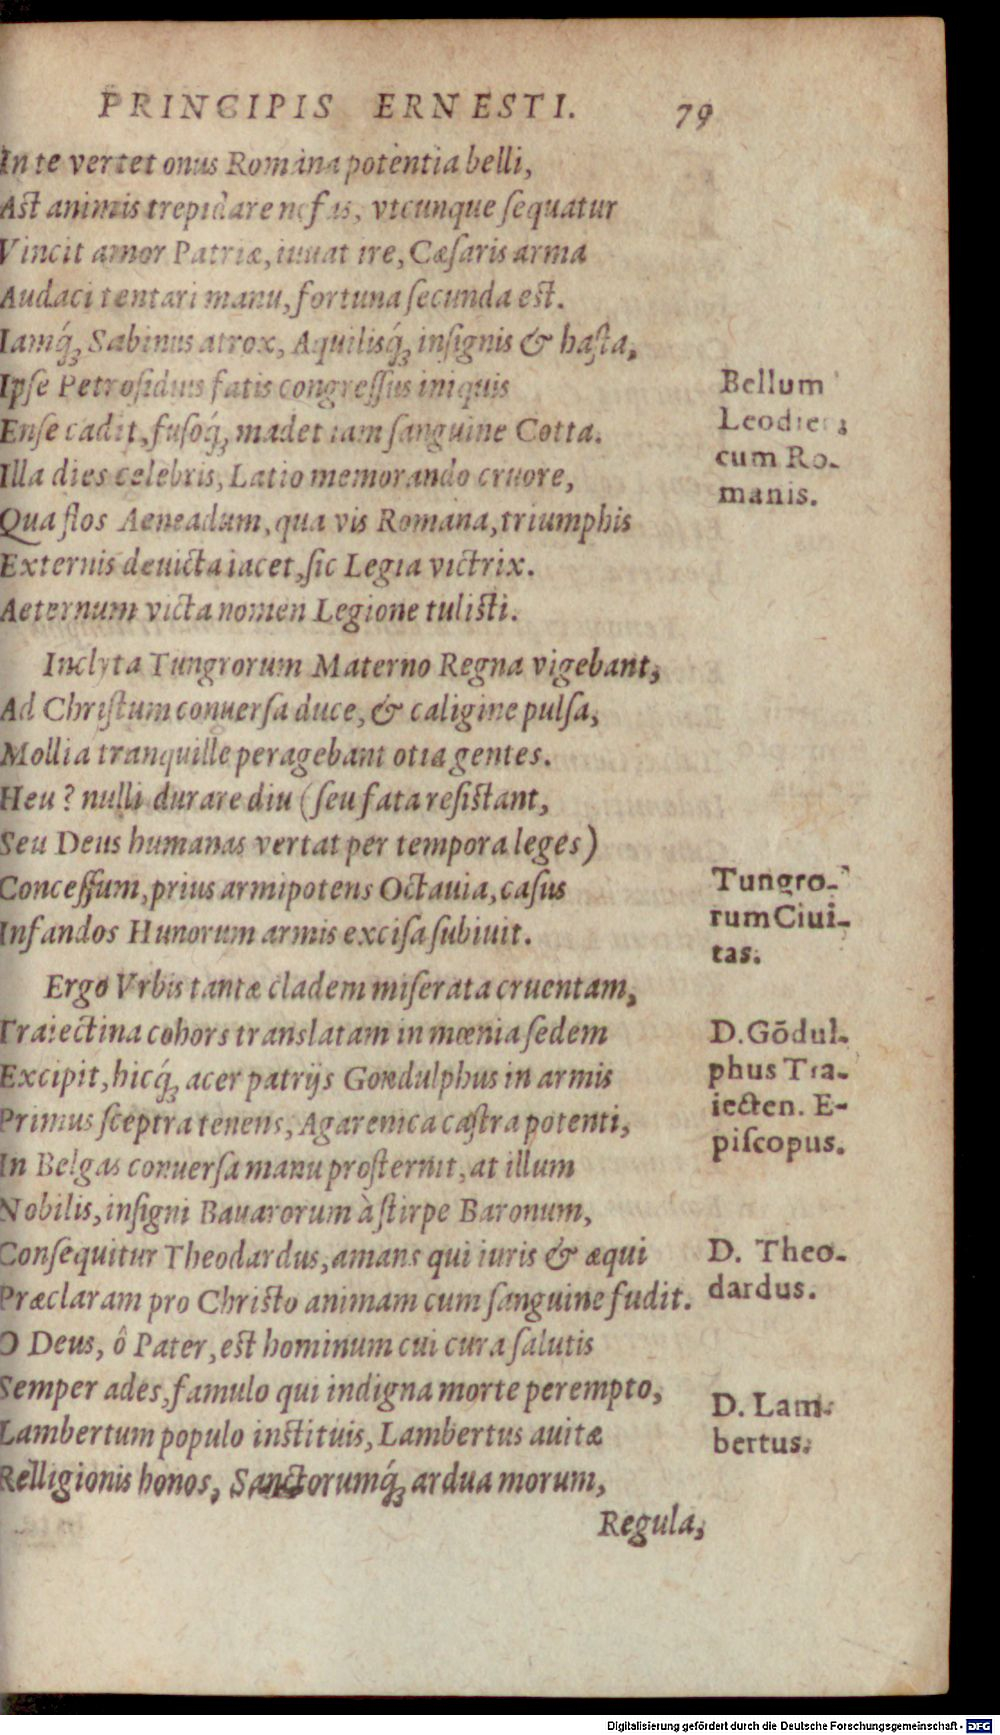 PRINCIPIS ERNESTI. 79
In te vertet onus Romana potentia belli,
Ast animis trepidare nefas, vtcunque sequatur
Vincit amor Patriæ, iuuat ire, Cæsaris arma
Audaci tentari manu, fortuna secunda est.
Iamq́ꝫ Sabinus atrox, Aquilisq́ꝫ insignis & hasta,
Ipse Petrosidius fatis congressus iniquis
Ense cadit, fusoq́ꝫ madet iam sanguine Cotta.
Illa dies celebris, Latio memorando cruore,
Qua flos Aeneadum, qua vis Romana, triumphis
Externis deuicta iacet, sic Legia victrix.
Aeternum victa nomen Legione tulisti.
Bellum
Leodien;
cum Ro-
manis.
Inclyta Tungrorum Materno Regna vigebant,
Ad Christum conuersa duce, & caligine pulsa,
Mollia tranquille peragebant otia gentes.
Heu? nulli durare diu (seu fata resistant,
Seu Deus humanas vertat per tempora leges)
Concessum, prius armipotens Octauia, casus
Infandos Hunorum armis excisa subiuit.
Tungro-
rum Ciui-
tas.
Ergo Vrbis tantæ cladem miserata cruentam,
Traiectina cohors translatam in mœnia sedem
Excipit, hicq́ꝫ acer patrijs Gondulphus in armis
Primus sceptra tenens, Agarenica castra potenti,
In Belgas conuersa manu prosternit, at illum
Nobilis, insigni Bauarorum à stirpe Baronum,
Consequitur Theodardus, amans qui iuris & æqui
Præclaram pro Christo animam cum sanguine fudit.
O Deus, ô Pater, est hominum cui cura salutis
Semper ades, famulo qui indigna morte perempto,
Lambertum populo instituis, Lambertus auitæ
Relligionis honos, Sanctorumq́ꝫ ardua morum,
D. Gōdul-
phus Tra-
iecten. E-
piscopus.
D. Theo-
dardus.
D. Lam-
bertus.
Regula,
Digitalisierung gefördert durch die Deutsche Forschungsgemeinschaft - DFG